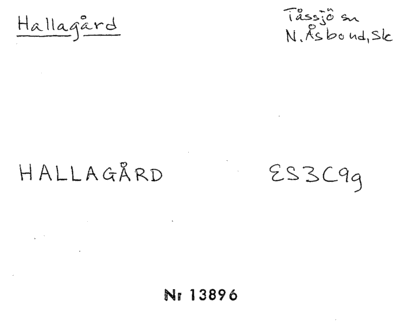 Hallagård
Tåssjö sn
N. Åsbo hd, Sk
HALLAGÅRD
ES3C9g
Nr 13896